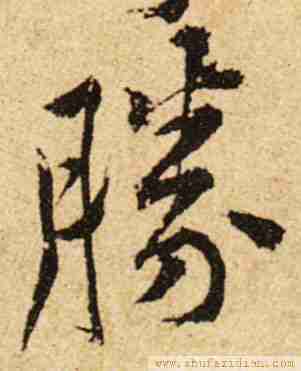 勝
www.shufazidian.com